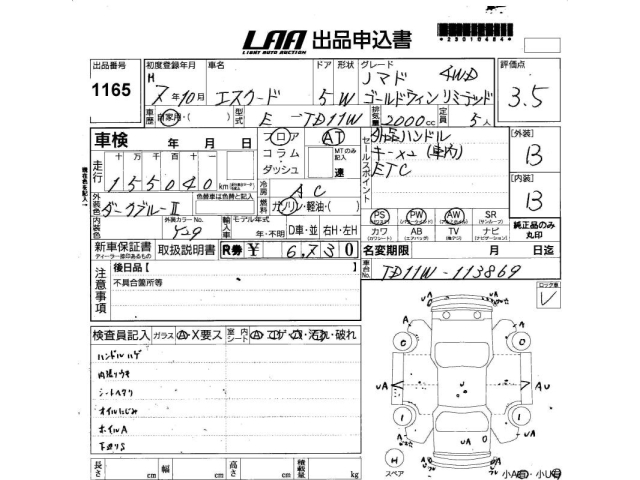 LAA 出品申込書
LIGHT AUTO AUCTION
*23010484*
出品番号 初度登録年月 車名 ドア 形状 グレード 評価点
1165
H 7年10月 エスクード 5 W ノマド 4WD
ゴールドウィン リミテッド
3.5
車歴 自家用・( ) 型式 E-TD11W 排気量 2000cc 定員 5人
車検 年 月 日
フロア
コラム・
ダッシュ
AT
MTのみ記入
速
セールスポイント
外品ハンドル
キーメュ(車内)
ETC
[外装]
B
[内装]
B
現在色を記入
走行 十 万 千 百 十 一
155040km
冷房 AC
外装色 ダークブルーII
色替車は色替と記入
燃料 ガソリン・軽油・( )
内装色 外装カラーNo. 輸入車 モデル年式 年・不明 D車・並 右H・左H
PS PW AW SR
(パワステ) (パワーウインド) (アルミホイル) (サンルーフ)
カワ AB TV ナビ
(カワシート) (エアバッグ) (後アジ) (ナビゲーション)
純正品のみ丸印
新車保証書 取扱説明書 R券 ¥ 6,730
ディーラー捺印あるもの
名変期限 月 日迄
注意事項
後日品【 】
不具合箇所等
車台No. TD11W-113869
ロック車
レ
検査員記入 ガラス A・X要ス 室内シート A コゲ・穴・汚れ・破れ
ハンドルハゲ
内張リウキ
シートヘタリ
オイルにじみ
ホイルA
下廻りS
長さ cm 幅 cm 高さ cm 積載量 kg
UA A
O O
UA A U
1 1
UA O
H
スペア
A UA A
小A 小U